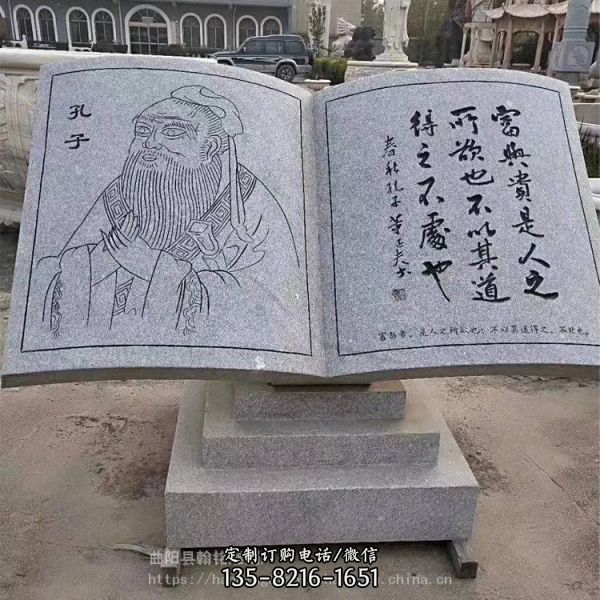 孔子
富與貴是人之
所欲也不以其道
得之不處也
春秋孔子
富与贵，是人之所欲也；不以其道得之，不处也。
曲阳县翰铭
定制订购电话/微信
135-8216-1651
https://ha .cn.china.cn